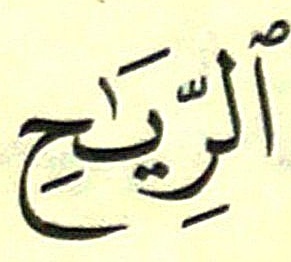 ٱلرِّيَٰحِ